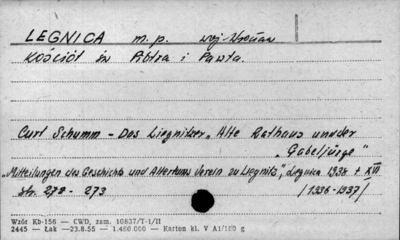 LEGNICA m. p. woj. Wrocław
Kościół św Piotra i Pawła.
Curt Schumm - Das Liegnitzer „Alte Rathaus und der
„Gabeljürge"
„Mitteilungen des Geschichts und Altertums Verein zu Liegnitz", Legnica 1938 t XVI
str. 272 - 273 /1936-1937/
Wzór Kb-156 — CWD, zam. 10837/T-1/II
2445 — Łak —23.8.55 — 1.460.000 — Karton kl. V A1/180 g